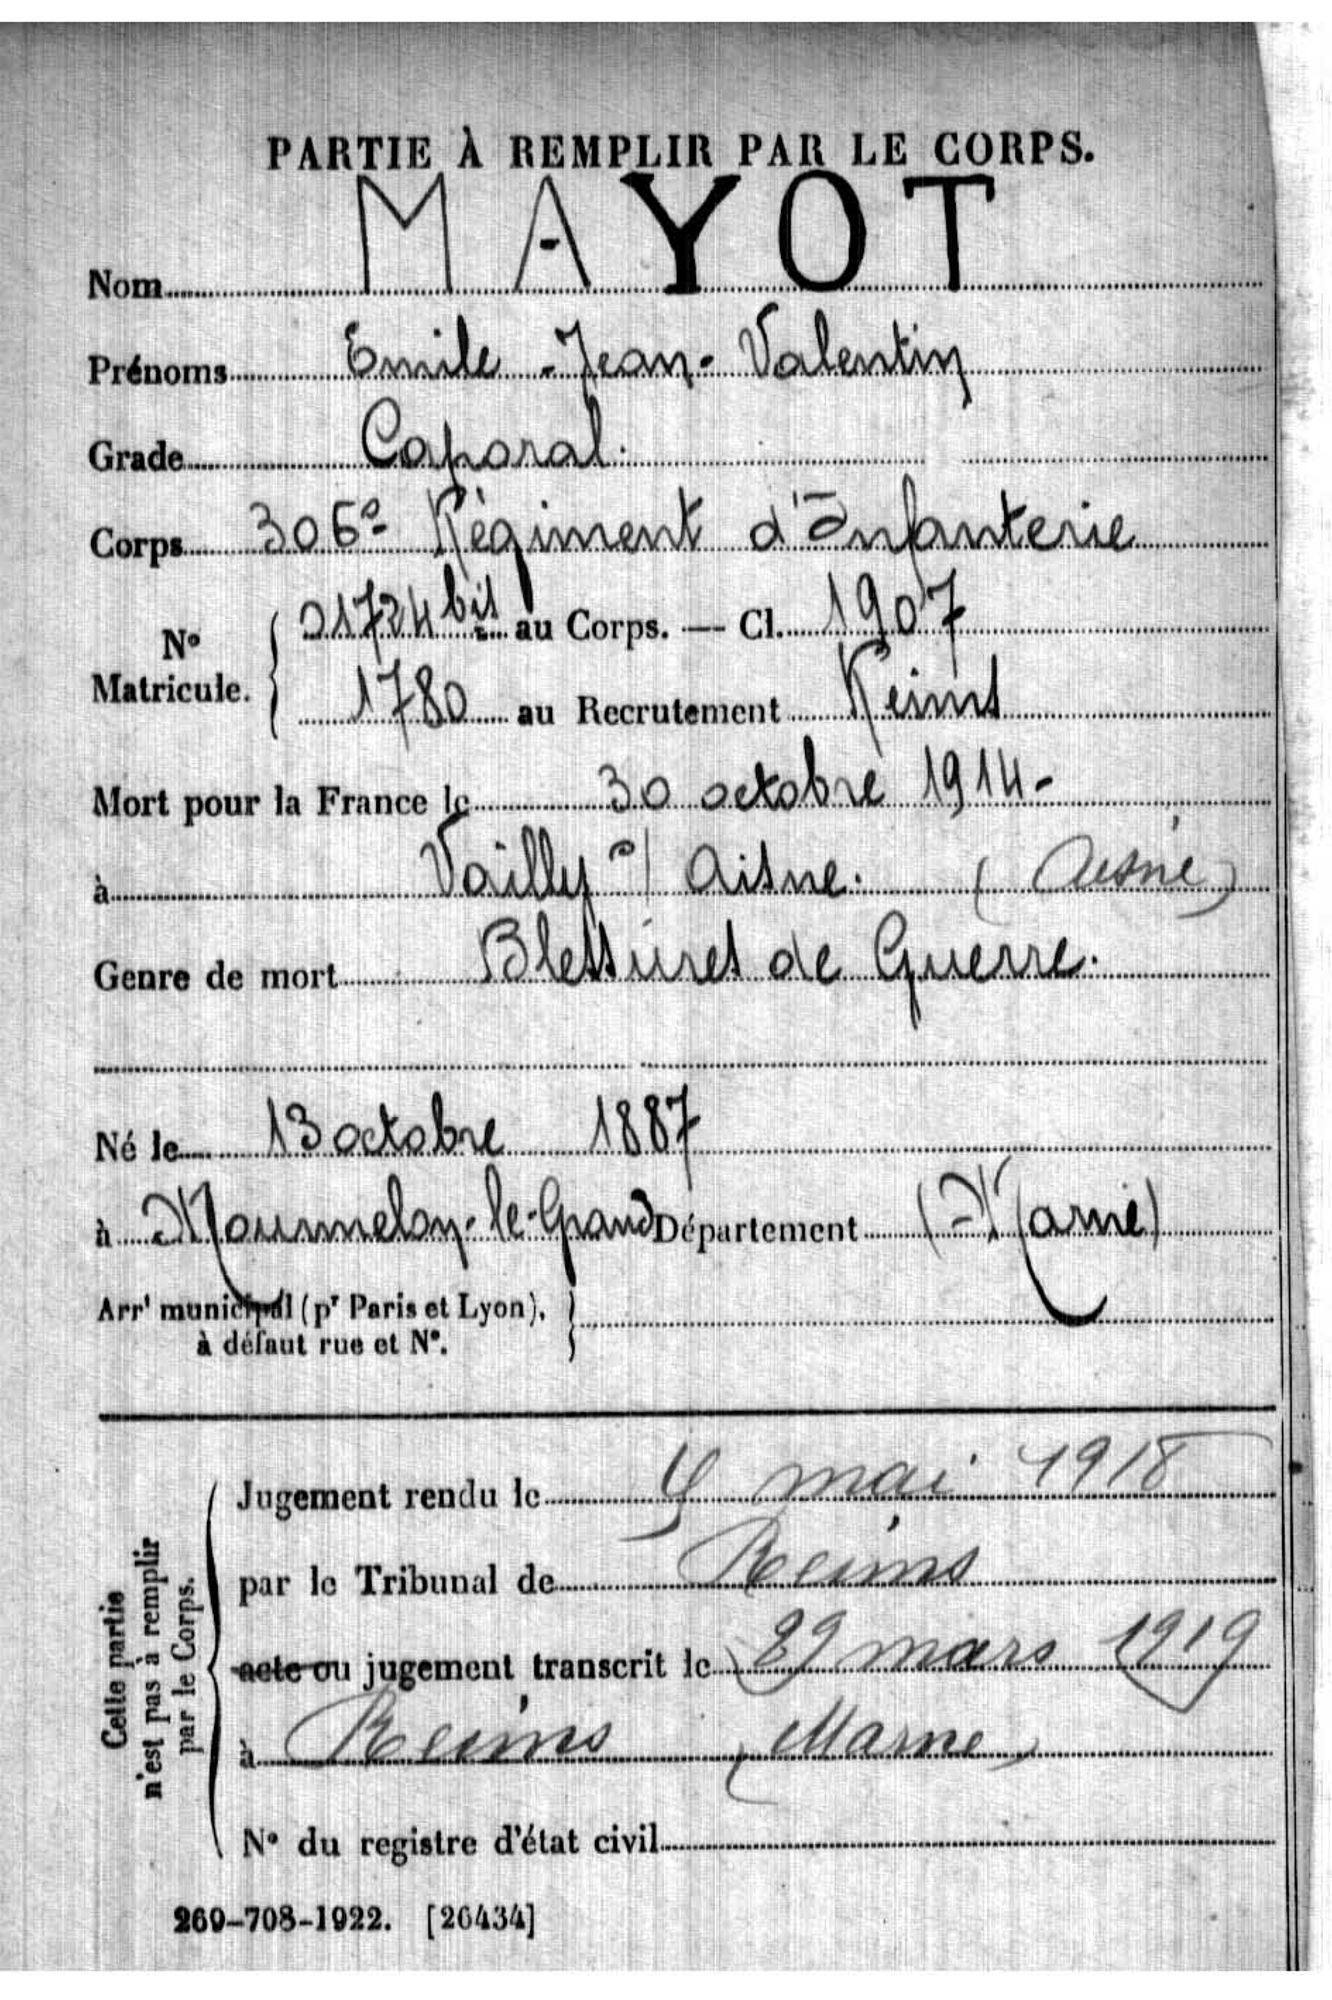 PARTIE À REMPLIR PAR LE CORPS.
Nom MAYOT
Prénoms Emile - Jean - Valentin
Grade Caporal.
Corps 306e Régiment d'Infanterie
N° Matricule. 21724 bis au Corps. — Cl. 1907
1780 au Recrutement Reims
Mort pour la France le 30 octobre 1914 -
à Vailly s/ Aisne. (Aisne)
Genre de mort Blessures de Guerre.
Né le 13 octobre 1887
à Mourmelon-le-Grand Département (Marne)
Arrt municipal (pr Paris et Lyon),
à défaut rue et N°.
Cette partie n'est pas à remplir par le Corps.
Jugement rendu le mai 1918
par le Tribunal de Reims
acte ou jugement transcrit le 29 mars 1919
à Reims (Marne)
N° du registre d'état civil
269-708-1922. [26434]